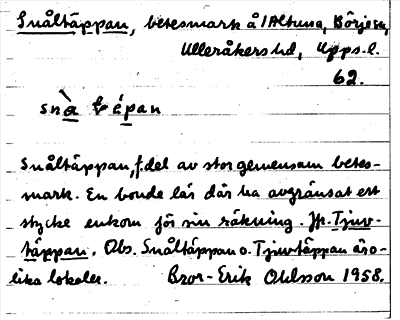 Snåltäppan, betesmark å 1 Altuna, Börje sn,
Ulleråkers hd, Upps. l.
62.
snà tépan
Snåltäppan, f. del av stor gemensam betes-
mark. En bonde lär där ha avgränsat ett
stycke enkom för sin räkning. Jfr. Tjuv-
täppan. Obs. Snåltäppan o. Tjuvtäppan är o-
lika lokaler. Bror-Erik Ohlsson 1958.